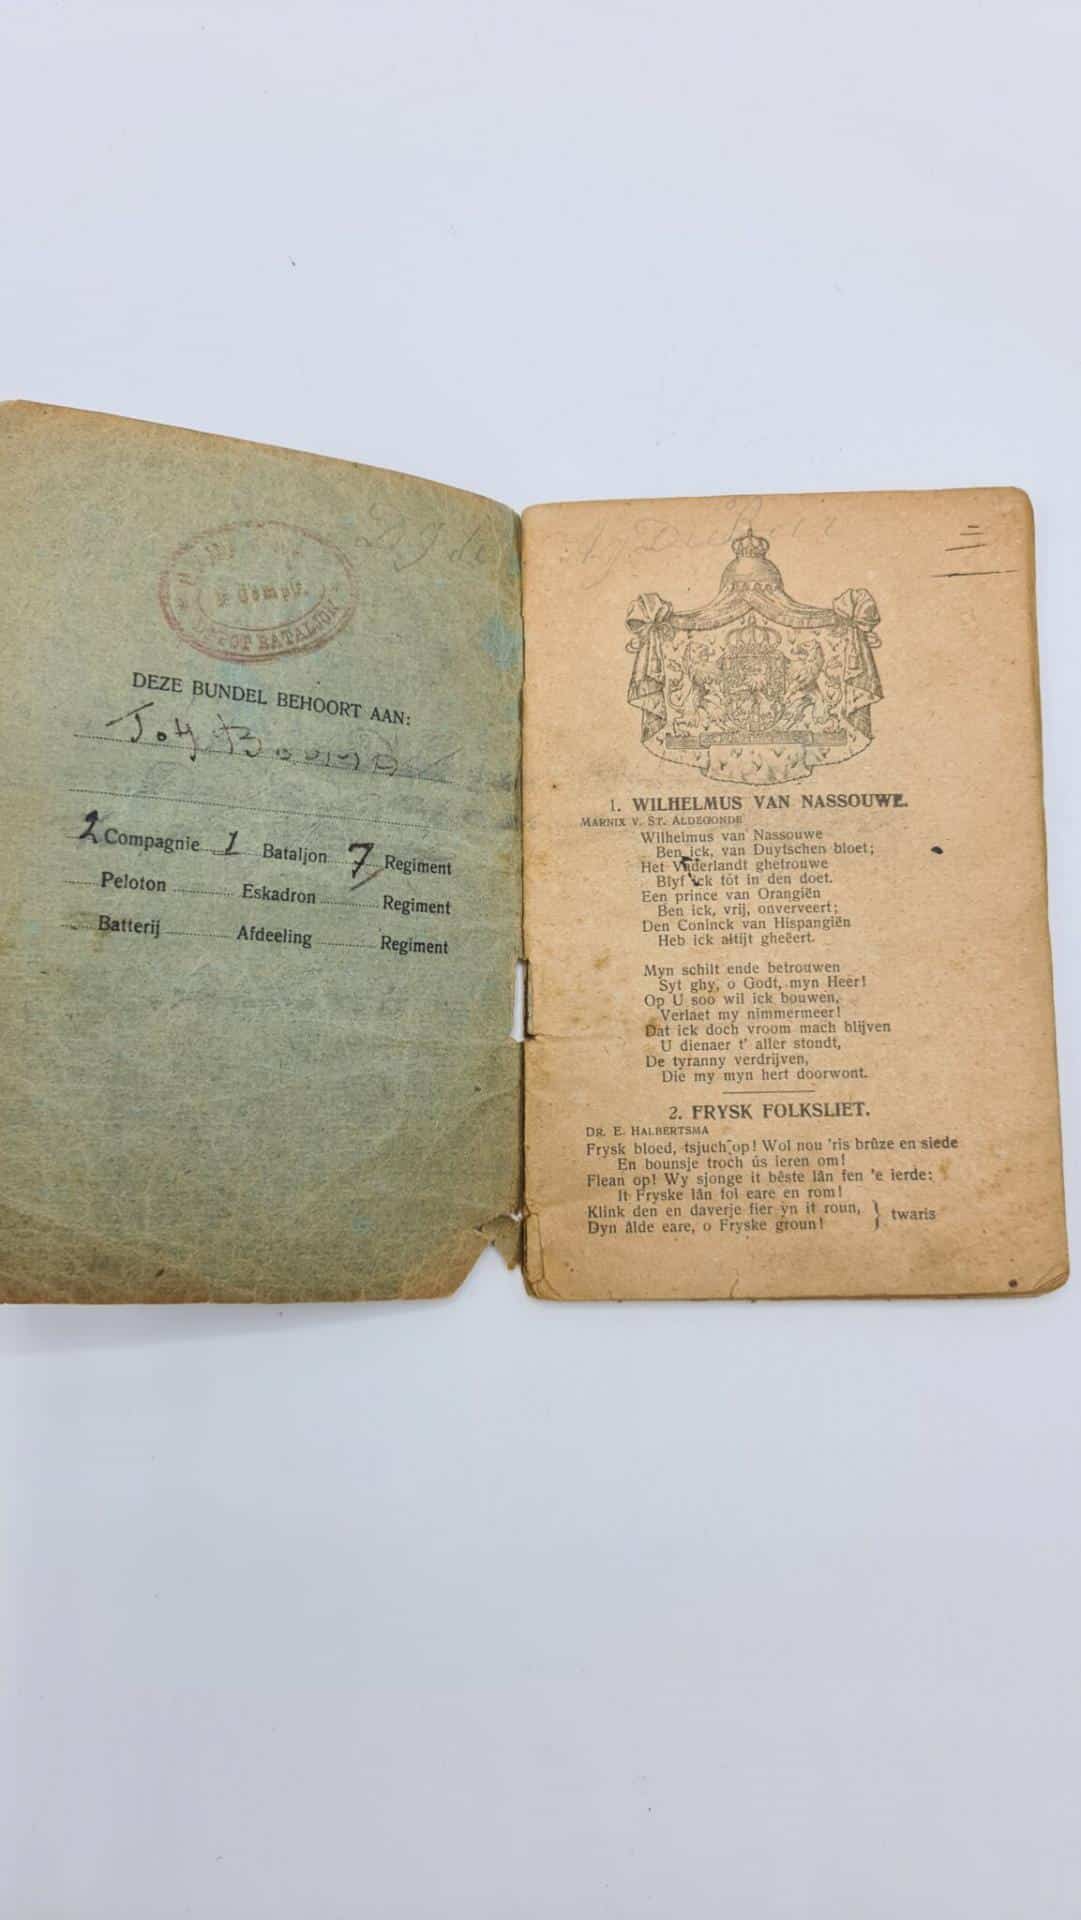 DEPOT BATALJON
DEZE BUNDEL BEHOORT AAN:
2 Compagnie 1 Bataljon 7 Regiment
Peloton Eskadron Regiment
Batterij Afdeeling Regiment
1. WILHELMUS VAN NASSOUWE.
MARNIX V. ST. ALDEGONDE
Wilhelmus van Nassouwe
Ben ick, van Duytschen bloet;
Het Vaderlandt ghetrouwe
Blyf ick tót in den doet.
Een prince van Orangiën
Ben ick, vrij, onverveert;
Den Coninck van Hispangiën
Heb ick altijt gheëert.
Myn schilt ende betrouwen
Syt ghy, o Godt, myn Heer!
Op U soo wil ick bouwen,
Verlaet my nimmermeer!
Dat ick doch vroom mach blijven
U dienaer t' aller stondt,
De tyranny verdrijven,
Die my myn hert doorwont.
2. FRYSK FOLKSLIET.
DR. E. HALBERTSMA
Frysk bloed, tsjuch op! Wol nou 'ris brûze en siede
En bounsje troch ús ieren om!
Flean op! Wy sjonge it bêste lân fen 'e ierde:
It Fryske lân fol eare en rom!
Klink den en daverje fier yn it roun, } twaris
Dyn âlde eare, o Fryske groun!